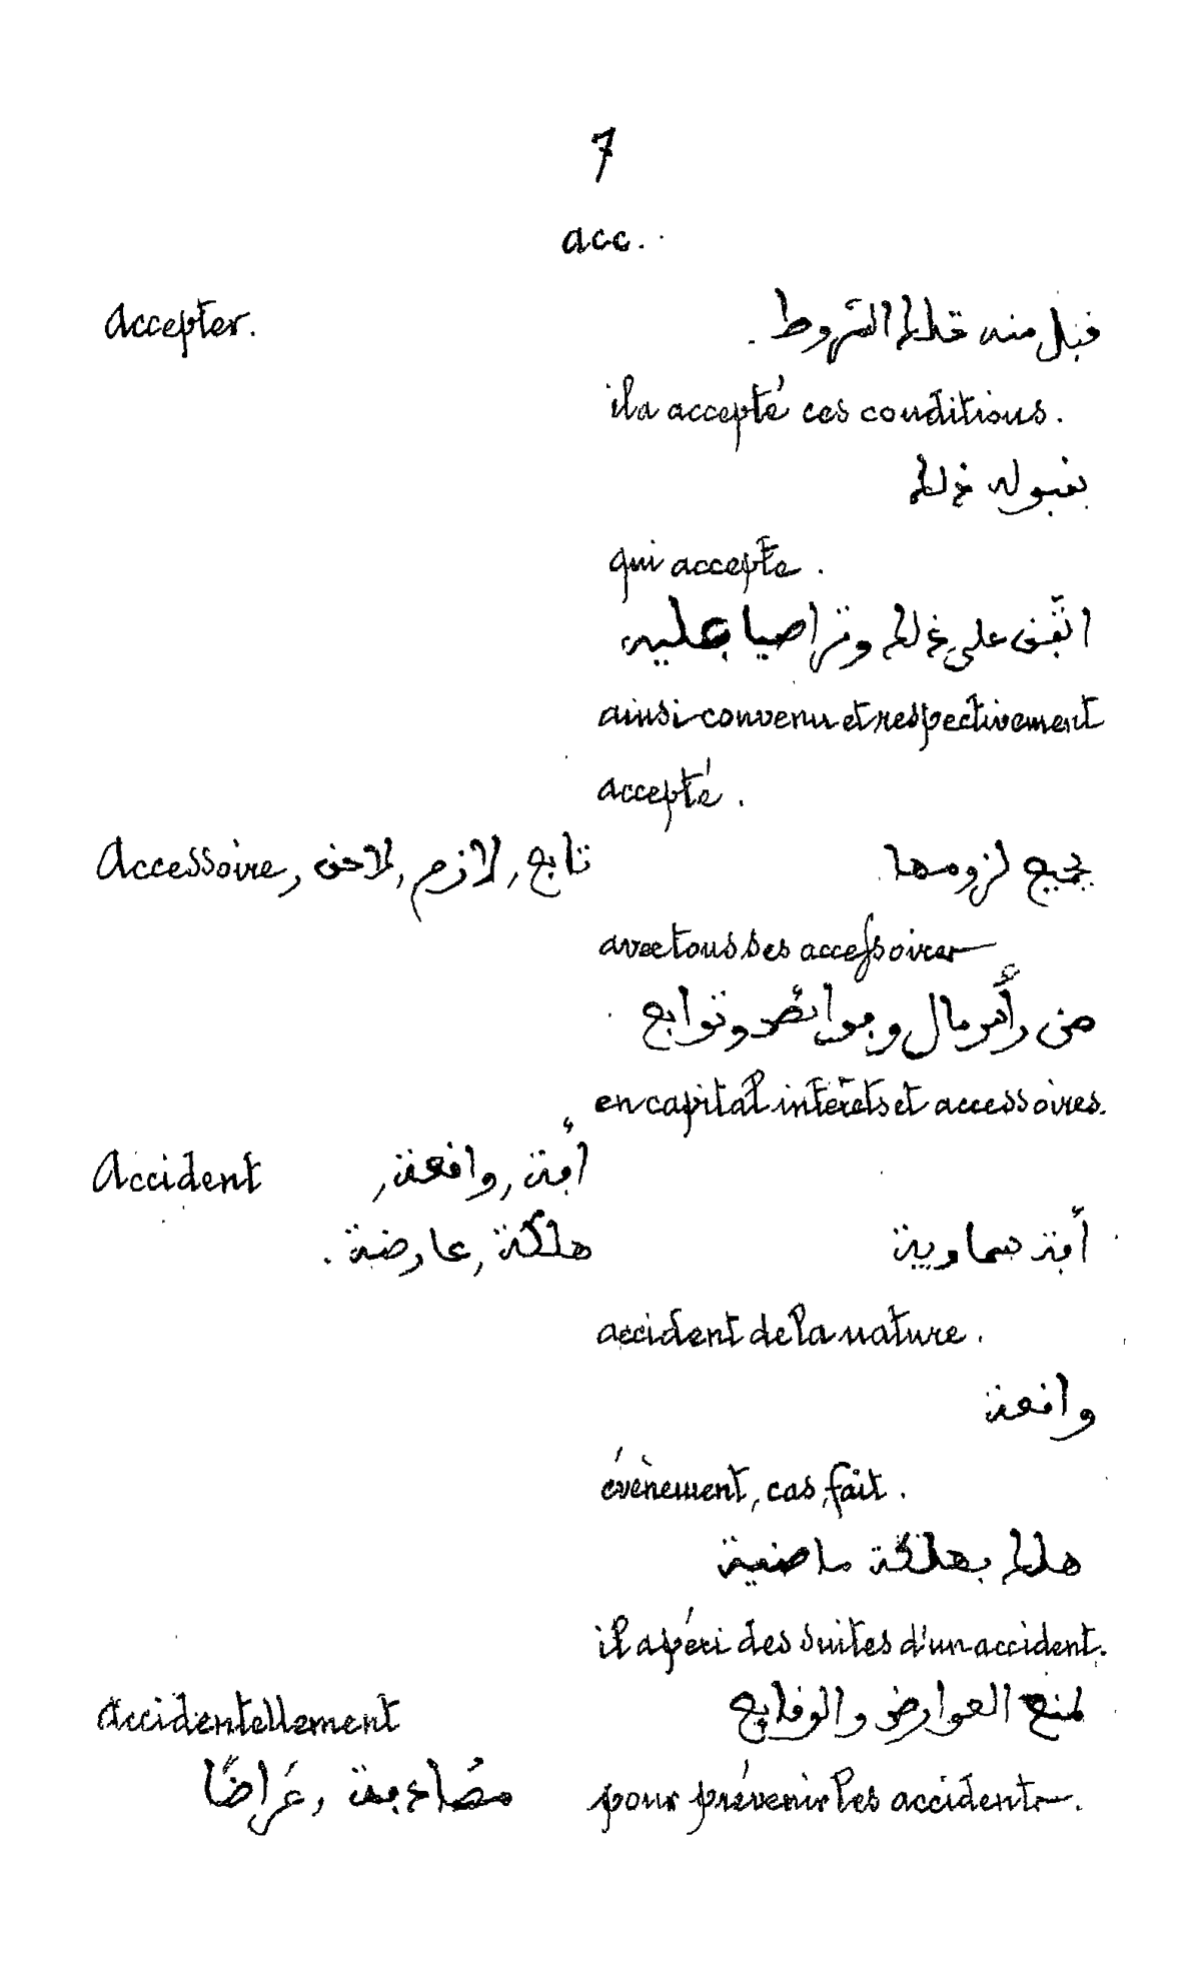 7
acc.
Accepter.
قبل منه تلك الشروط.
il a accepté ces conditions.
بقبوله ذلك
qui accepte.
اتفق على ذلك وتراضيا عليه
ainsi convenu et respectivement
accepté.
Accessoire, تابع, لازم, لاحق
بجميع لزومها
avec tous ses accessoires
من رأس مال وفوائض وتوابع
en capital intérêts et accessoires.
Accident آفة, واقعة,
هلكة, عارضة.
آفة سماوية
accident de la nature.
واقعة
évènement, cas, fait.
هلك بهلكة ماضية
il a péri des suites d'un accident.
accidentellement
مصادفة, عَرَاضًا
لمنع العوارض والوقايع
pour prévenir les accidents.